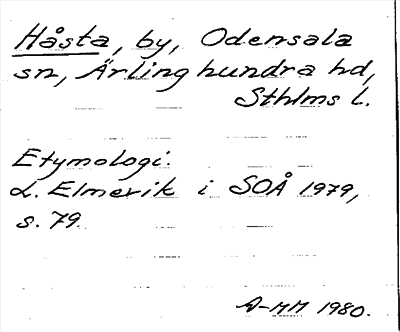 Håsta, by, Odensala
sn, Ärlinghundra hd,
Sthlms l.
Etymologi:
L. Elmevik i SOÅ 1979,
s. 79.
A-MM 1980.